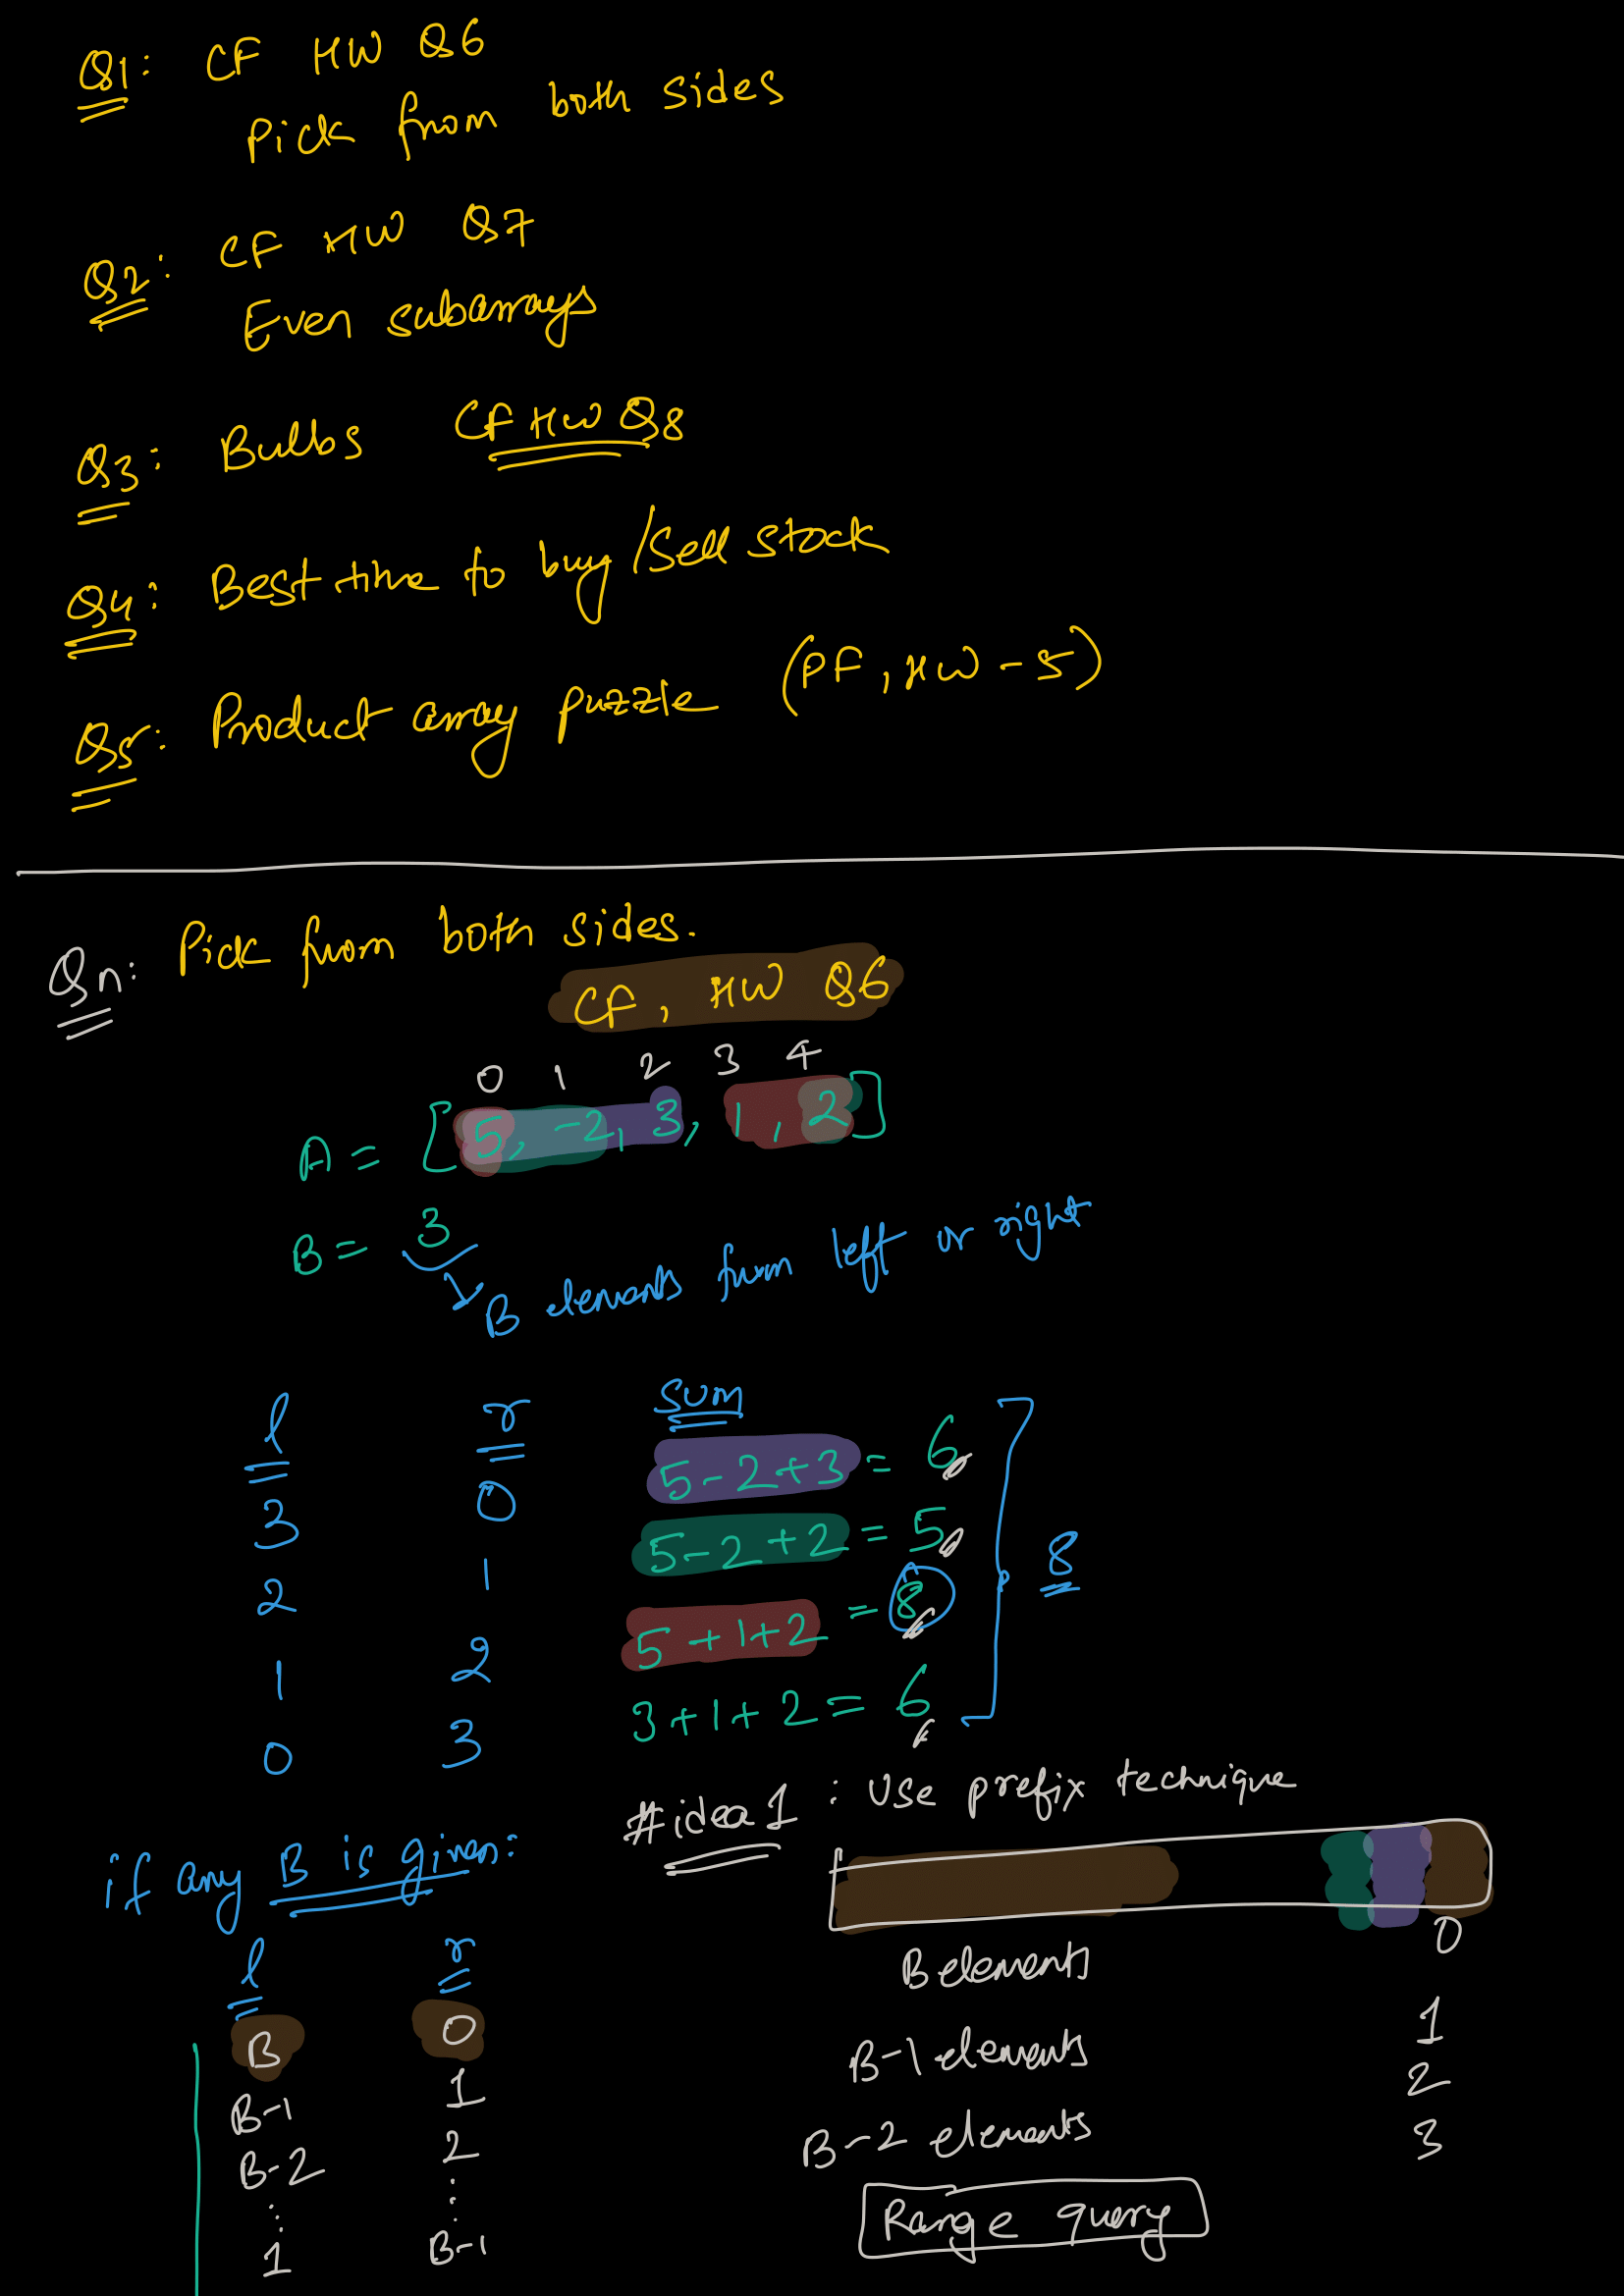 Q1: CF HW Q6
Pick from both sides
Q2: CF HW Q7
Even subarrays
Q3: Bulbs CF HW Q8
Q4: Best time to buy/sell stock
Q5: Product array puzzle (PF, HW-5)
Qn: Pick from both sides.
CF, HW Q6
0 1 2 3 4
A = [5, -2, 3, 1, 2]
B = 3
B elements from left or right
l r sum
3 0 5-2+3 = 6
2 1 5-2+2 = 5
1 2 5+1+2 = 8
8
0 3 3+1+2 = 6
#idea1 : Use prefix technique
if any B is given:
l r
B elements 0
B 0
B-1 elements 1
B-1 1
2
B-2 elements 3
B-2 2
⋮ ⋮
1 B-1
Range query